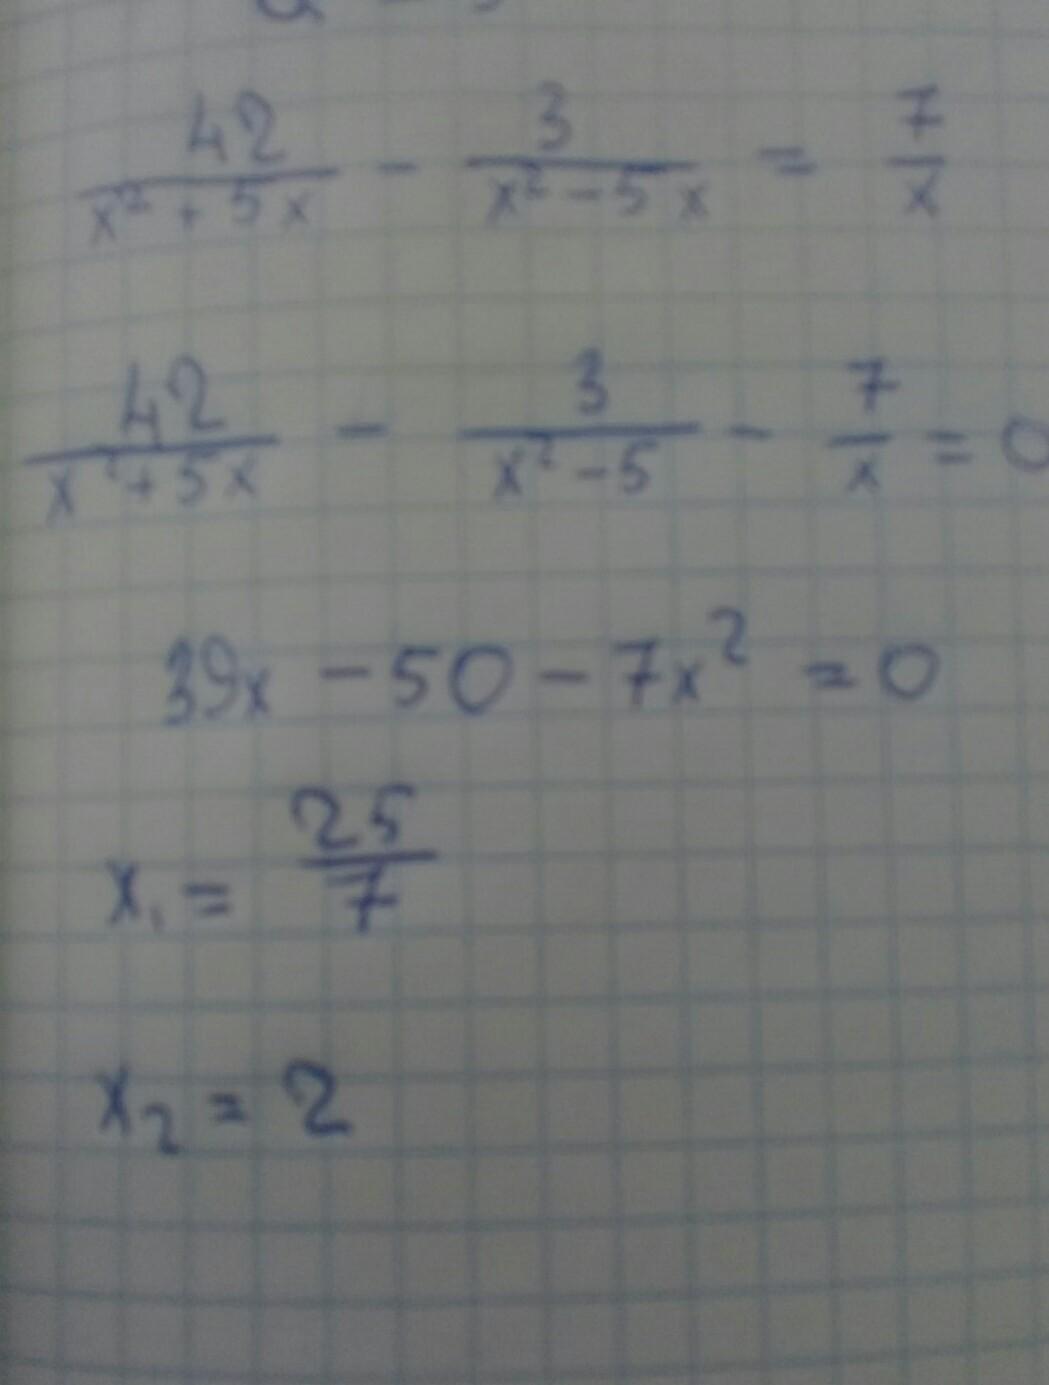 42/(x² + 5x) - 3/(x² - 5x) = 7/x
42/(x² + 5x) - 3/(x² - 5) - 7/x = 0
39x - 50 - 7x² = 0
x₁ = 25/7
x₂ = 2